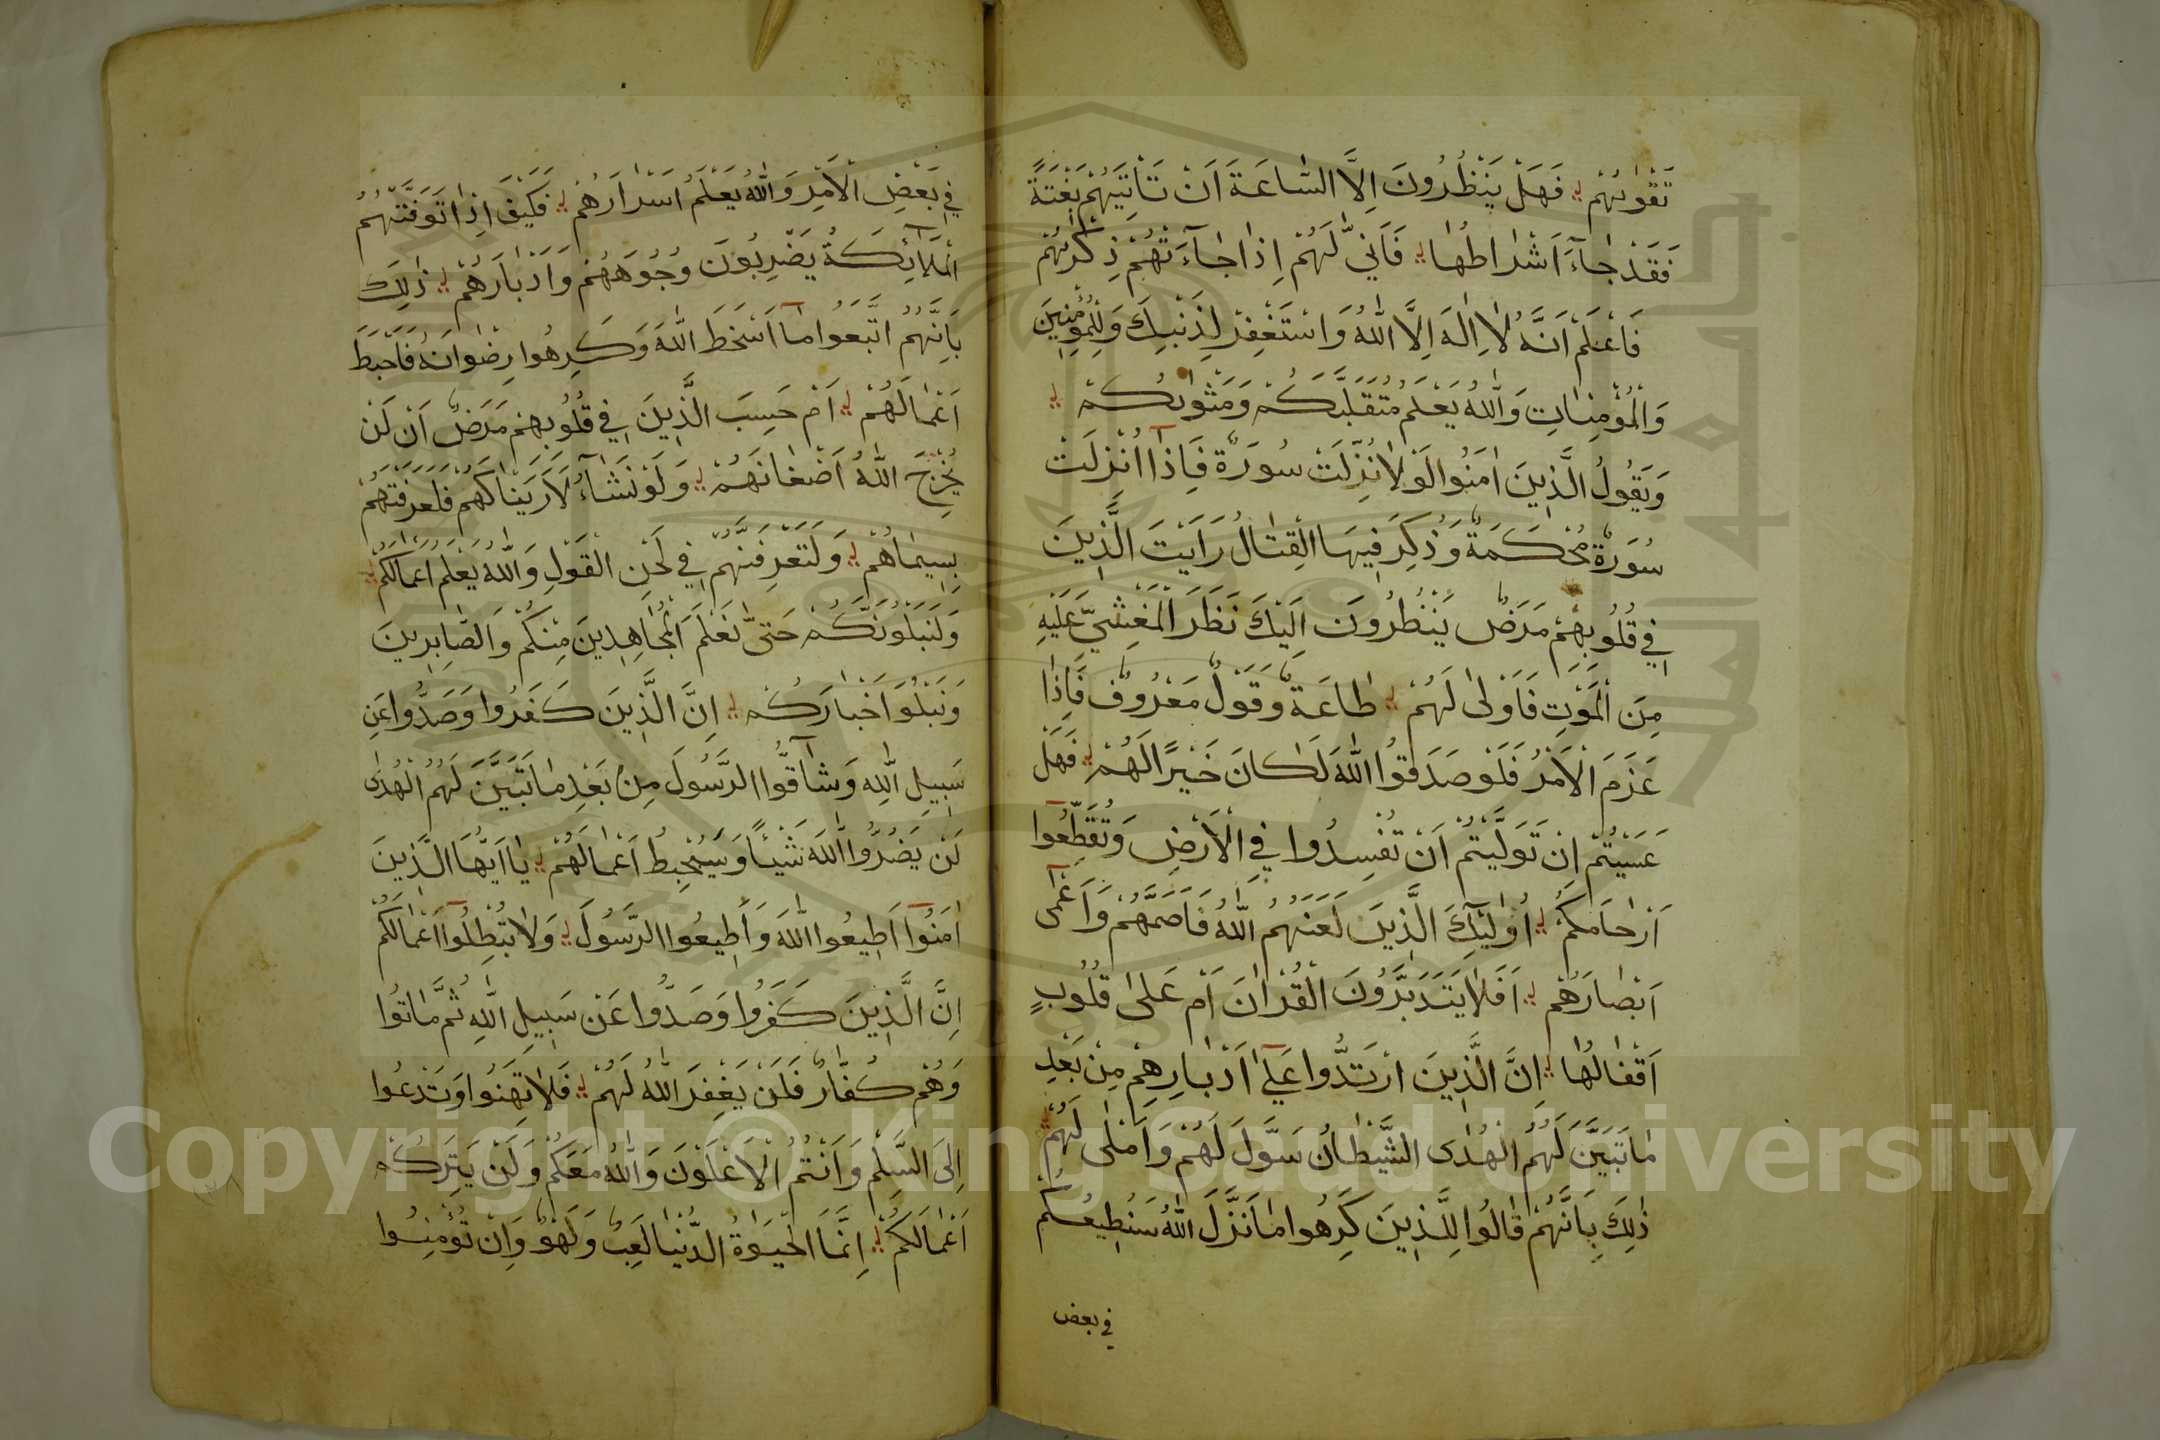 تَقْوٰىهُمْ فَهَلْ يَنْظُرُونَ اِلَّا السَّاعَةَ اَنْ تَأْتِيَهُمْ بَغْتَةً
فَقَدْ جَآءَ اَشْرَاطُهَا فَاَنّٰى لَهُمْ اِذَا جَآءَتْهُمْ ذِكْرٰىهُمْ
فَاعْلَمْ اَنَّهُ لَا اِلٰهَ اِلَّا اللّٰهُ وَاسْتَغْفِرْ لِذَنْبِكَ وَلِلْمُؤْمِنِينَ
وَالْمُؤْمِنَاتِ وَاللّٰهُ يَعْلَمُ مُتَقَلَّبَكُمْ وَمَثْوٰىكُمْ
وَيَقُولُ الَّذِينَ اٰمَنُوا لَوْلَا نُزِّلَتْ سُورَةٌ فَاِذَآ اُنْزِلَتْ
سُورَةٌ مُحْكَمَةٌ وَذُكِرَ فِيهَا الْقِتَالُ رَاَيْتَ الَّذِينَ
فِي قُلُوبِهِمْ مَرَضٌ يَنْظُرُونَ اِلَيْكَ نَظَرَ الْمَغْشِيِّ عَلَيْهِ
مِنَ الْمَوْتِ فَاَوْلٰى لَهُمْ طَاعَةٌ وَقَوْلٌ مَعْرُوفٌ فَاِذَا
عَزَمَ الْاَمْرُ فَلَوْ صَدَقُوا اللّٰهَ لَكَانَ خَيْرًا لَهُمْ فَهَلْ
عَسَيْتُمْ اِنْ تَوَلَّيْتُمْ اَنْ تُفْسِدُوا فِي الْاَرْضِ وَتُقَطِّعُوٓا
اَرْحَامَكُمْ اُولٰٓئِكَ الَّذِينَ لَعَنَهُمُ اللّٰهُ فَاَصَمَّهُمْ وَاَعْمٰٓى
اَبْصَارَهُمْ اَفَلَا يَتَدَبَّرُونَ الْقُرْاٰنَ اَمْ عَلٰى قُلُوبٍ
اَقْفَالُهَا اِنَّ الَّذِينَ ارْتَدُّوا عَلٰٓى اَدْبَارِهِمْ مِنْ بَعْدِ
مَا تَبَيَّنَ لَهُمُ الْهُدَى الشَّيْطَانُ سَوَّلَ لَهُمْ وَاَمْلٰى لَهُمْ
ذٰلِكَ بِاَنَّهُمْ قَالُوا لِلَّذِينَ كَرِهُوا مَا نَزَّلَ اللّٰهُ سَنُطِيعُكُمْ
في بعض
فِي بَعْضِ الْاَمْرِ وَاللّٰهُ يَعْلَمُ اَسْرَارَهُمْ فَكَيْفَ اِذَا تَوَفَّتْهُمُ
الْمَلَآئِكَةُ يَضْرِبُونَ وُجُوهَهُمْ وَاَدْبَارَهُمْ ذٰلِكَ
بِاَنَّهُمُ اتَّبَعُوا مَآ اَسْخَطَ اللّٰهَ وَكَرِهُوا رِضْوَانَهُ فَاَحْبَطَ
اَعْمَالَهُمْ اَمْ حَسِبَ الَّذِينَ فِي قُلُوبِهِمْ مَرَضٌ اَنْ لَنْ
يُخْرِجَ اللّٰهُ اَضْغَانَهُمْ وَلَوْ نَشَآءُ لَاَرَيْنَاكَهُمْ فَلَعَرَفْتَهُمْ
بِسِيمَاهُمْ وَلَتَعْرِفَنَّهُمْ فِي لَحْنِ الْقَوْلِ وَاللّٰهُ يَعْلَمُ اَعْمَالَكُمْ
وَلَنَبْلُوَنَّكُمْ حَتّٰى نَعْلَمَ الْمُجَاهِدِينَ مِنْكُمْ وَالصَّابِرِينَ
وَنَبْلُوَا اَخْبَارَكُمْ اِنَّ الَّذِينَ كَفَرُوا وَصَدُّوا عَنْ
سَبِيلِ اللّٰهِ وَشَآقُّوا الرَّسُولَ مِنْ بَعْدِ مَا تَبَيَّنَ لَهُمُ الْهُدٰى
لَنْ يَضُرُّوا اللّٰهَ شَيْئًا وَسَيُحْبِطُ اَعْمَالَهُمْ يَا اَيُّهَا الَّذِينَ
اٰمَنُوٓا اَطِيعُوا اللّٰهَ وَاَطِيعُوا الرَّسُولَ وَلَا تُبْطِلُوٓا اَعْمَالَكُمْ
اِنَّ الَّذِينَ كَفَرُوا وَصَدُّوا عَنْ سَبِيلِ اللّٰهِ ثُمَّ مَاتُوا
وَهُمْ كُفَّارٌ فَلَنْ يَغْفِرَ اللّٰهُ لَهُمْ فَلَا تَهِنُوا وَتَدْعُوا
اِلَى السَّلْمِ وَاَنْتُمُ الْاَعْلَوْنَ وَاللّٰهُ مَعَكُمْ وَلَنْ يَتِرَكُمْ
اَعْمَالَكُمْ اِنَّمَا الْحَيٰوةُ الدُّنْيَا لَعِبٌ وَلَهْوٌ وَاِنْ تُؤْمِنُوا
Copyright © King Saud University